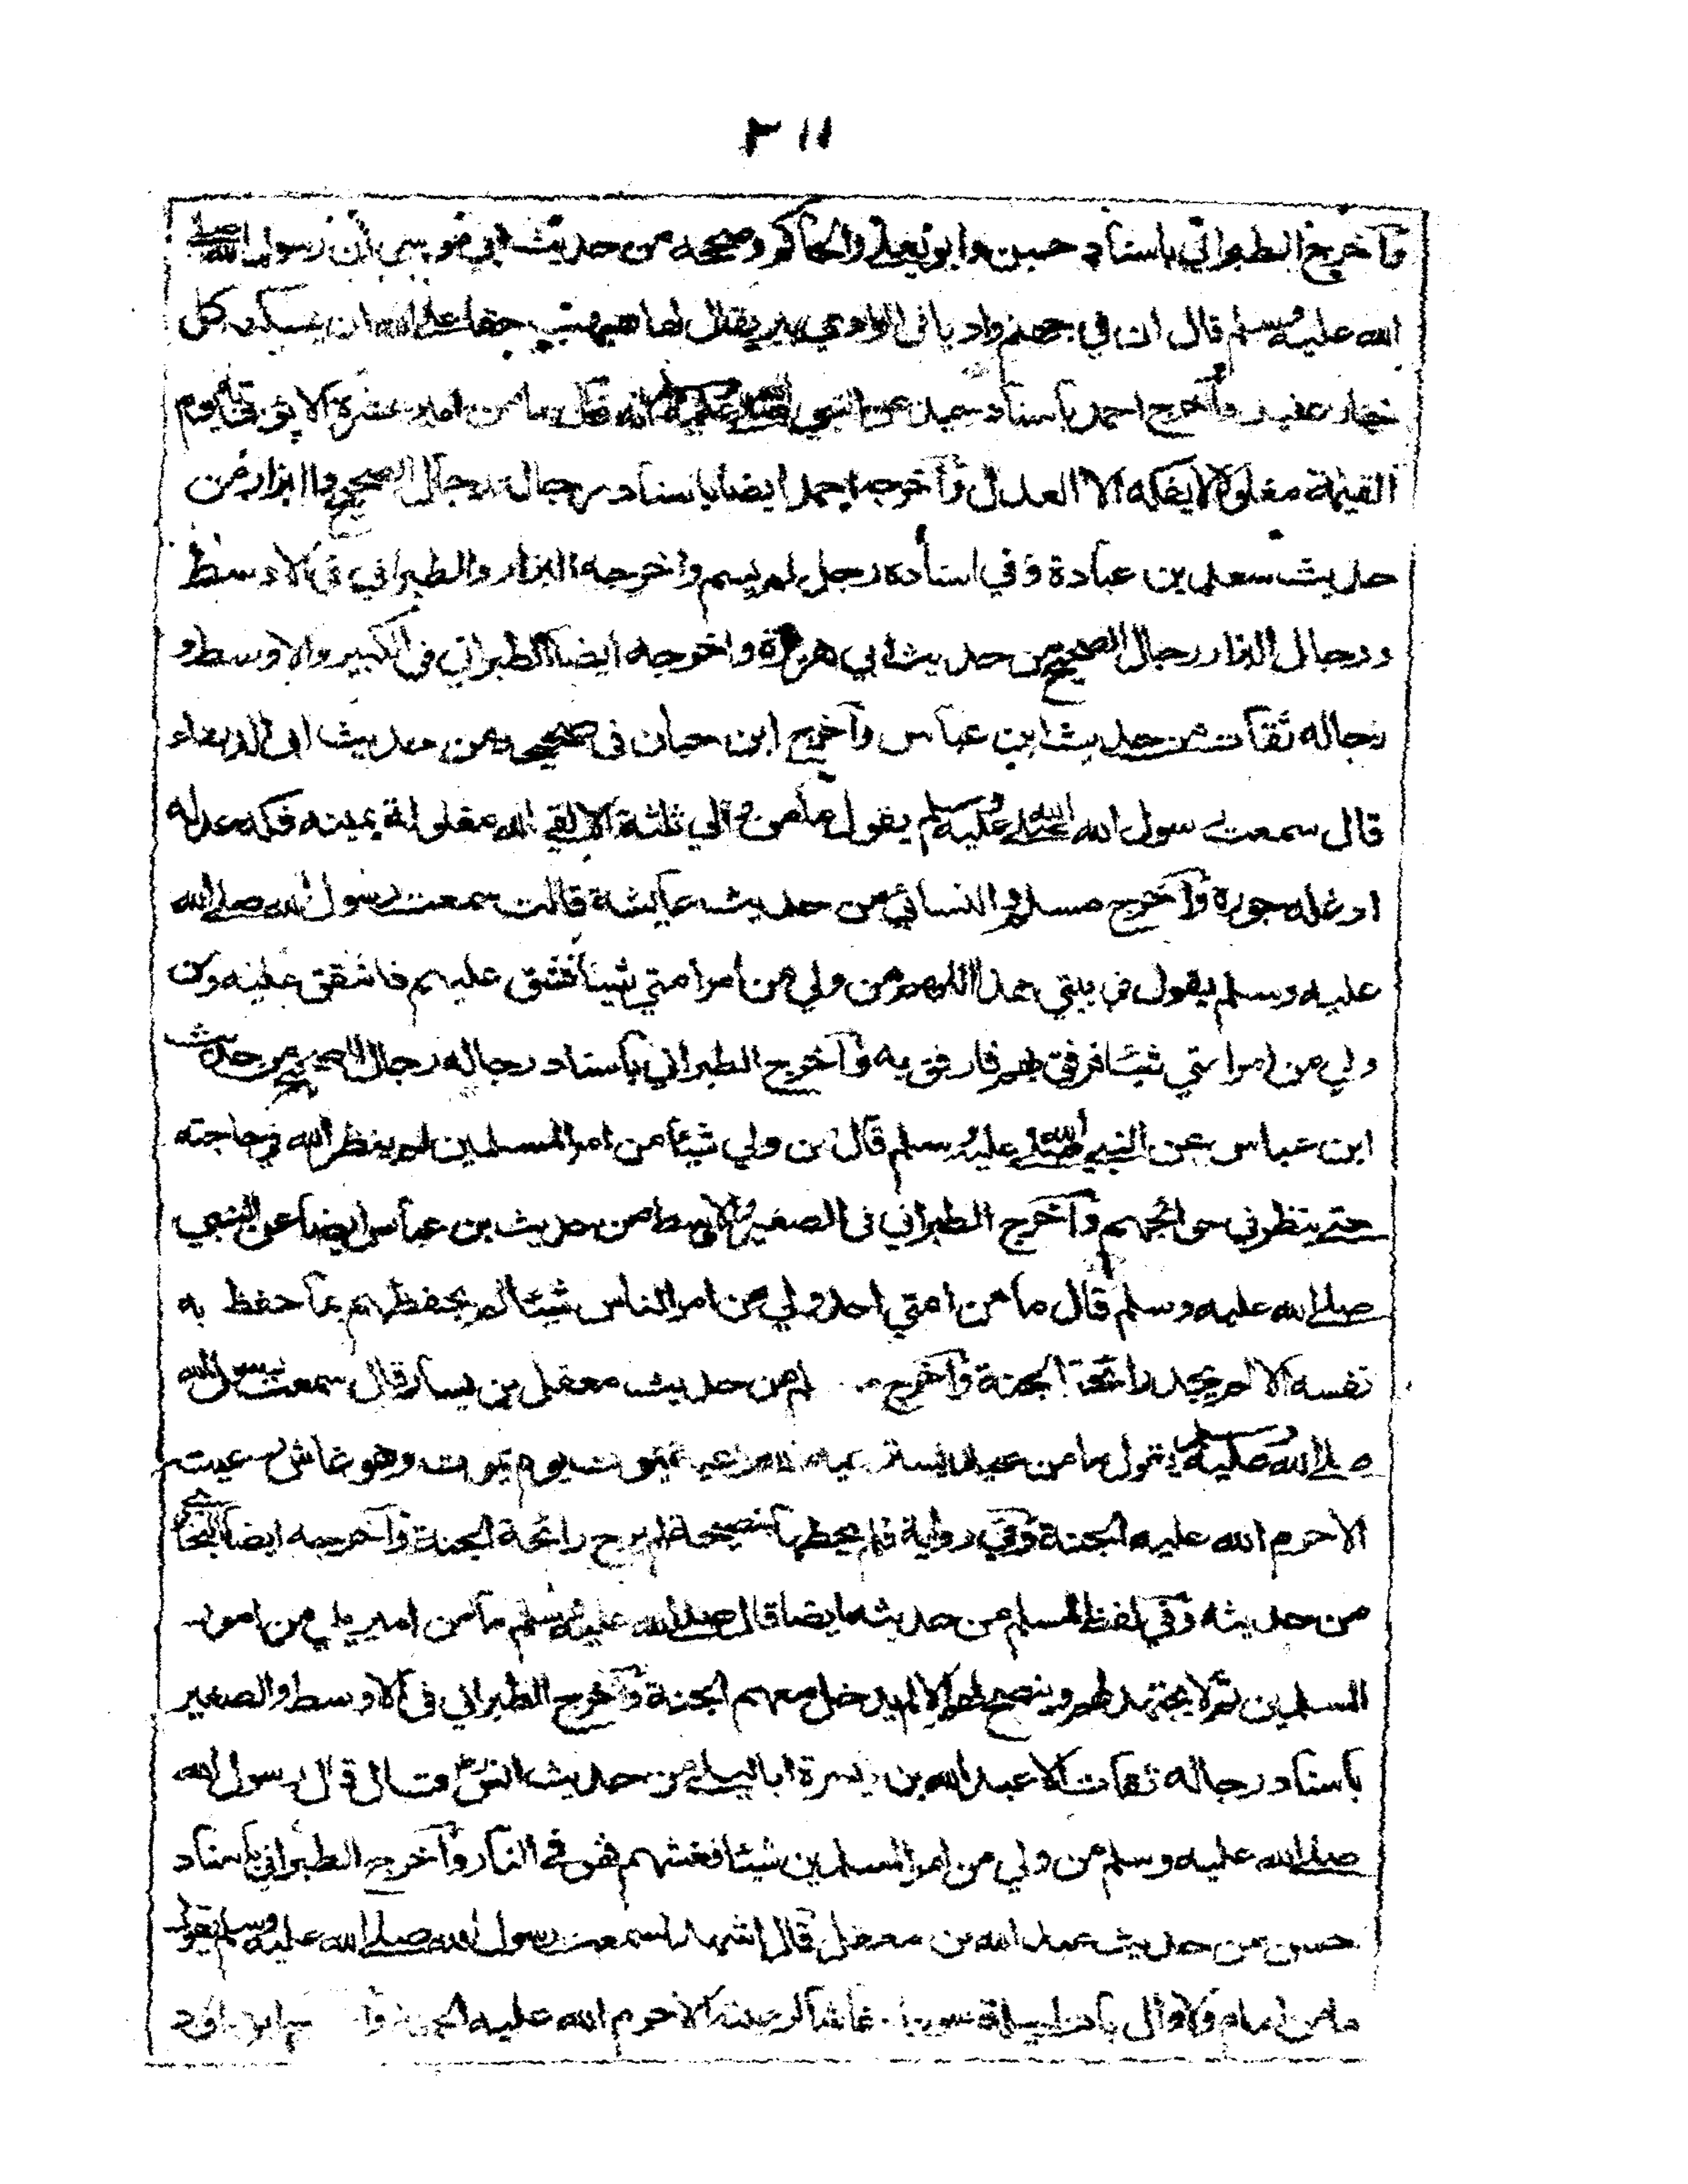 ٣١١
وأخرج الطبراني باسناد حسن وابو يعلى والحاكم وصححه من حديث ابي موسى ان رسول الله صلى
الله عليه وسلم قال ان في جهنم واديا في الوادي بير يقال لها هبهب حقا على الله ان يسكنه كل
جبار عنيد وأخرج احمد باسناد جيد عن النبي صلى الله عليه وسلم انه قال ما من امير عشرة الا يؤتى به يوم
القيمة مغلولا لا يفكه الا العدل وأخرجه احمد ايضا باسناد رجاله رجال الصحيح والبزار من
حديث سعد بن عبادة وفي اسناده رجل لم يسم واخرجه البزار والطبراني في الاوسط
ورجال البزار رجال الصحيح من حديث ابي هريرة واخرجه ايضا الطبراني في الكبير والاوسط و
رجاله ثقات من حديث ابن عباس وأخرج ابن حبان في صحيحه من حديث ابي الدرداء
قال سمعت رسول الله صلى الله عليه وسلم يقول ما من والي ثلثة الا لقي الله مغلولة يمينه فكه عدله
او غله جوره وأخرج مسلم والنسائي من حديث عايشة قالت سمعت رسول الله صلى الله
عليه وسلم يقول في بيتي هذا اللهم من ولي من امر امتي شيئا فشق عليهم فاشقق عليه ومن
ولي من امر امتي شيئا فرفق بهم فارفق به وأخرج الطبراني باسناد رجاله رجال الصحيح من حديث
ابن عباس عن النبي صلى الله عليه وسلم قال من ولي شيئا من امر المسلمين لم ينظر الله في حاجته
حتى ينظر في حوائجهم وأخرج الطبراني في الصغير والاوسط من حديث بن عباس ايضا عن النبي
صلى الله عليه وسلم قال ما من امتي احد ولي من امر الناس شيئا لم يحفظهم بما حفظ به
نفسه الا لم يجد رائحة الجنة وأخرج من حديث معقل بن يسار قال سمعت رسول الله
صلى الله عليه وسلم يقول ما من عبد يسترعيه الله رعية يموت يوم يموت وهو غاش رعيته
الا حرم الله عليه الجنة وفي رواية فلم يحطها بنصيحة لم يرح رائحة الجنة وأخرجه ايضا البخاري
من حديثه وفي لفظ لمسلم من حديثه ايضا قال صلى الله عليه وسلم ما من امير يلي من امور
المسلمين ثم لا يجتهد لهم وينصح لهم الا لم يدخل معهم الجنة وأخرج الطبراني في الاوسط والصغير
باسناد رجاله ثقات الا عبد الله بن ميسرة ابا ليلى من حديث انس قال قال رسول الله
صلى الله عليه وسلم من ولي من امر المسلمين شيئا فغشهم فهو في النار وأخرج الطبراني باسناد
حسن من حديث عبد الله بن مغفل قال اشهد لسمعت رسول الله صلى الله عليه وسلم يقول
ما من امام ولا وال بات ليلة سوداء غاشا لرعيته الا حرم الله عليه الجنة ابو داود